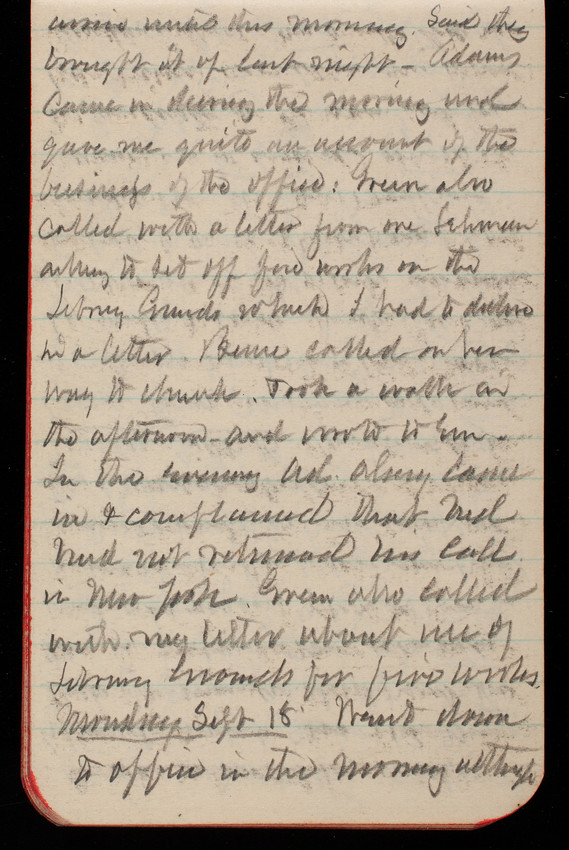 arrive until this morning. Said they
brought it up last night - Adams
came in during the morning and
gave me quite an account of the
business of the office: Green also
called with a letter from one
asking to set off fire works on the
Library Grounds which I had to decline
in a letter. called on her
way to church. Took a walk in
the afternoon - and wrote to Em.
In the evening Ad. came
in & complained that had
had not returned his call
in New York. Green also called
with my letter about use of
Library Grounds for fire works.
Monday Sept 18 Went down
to office in the morning although